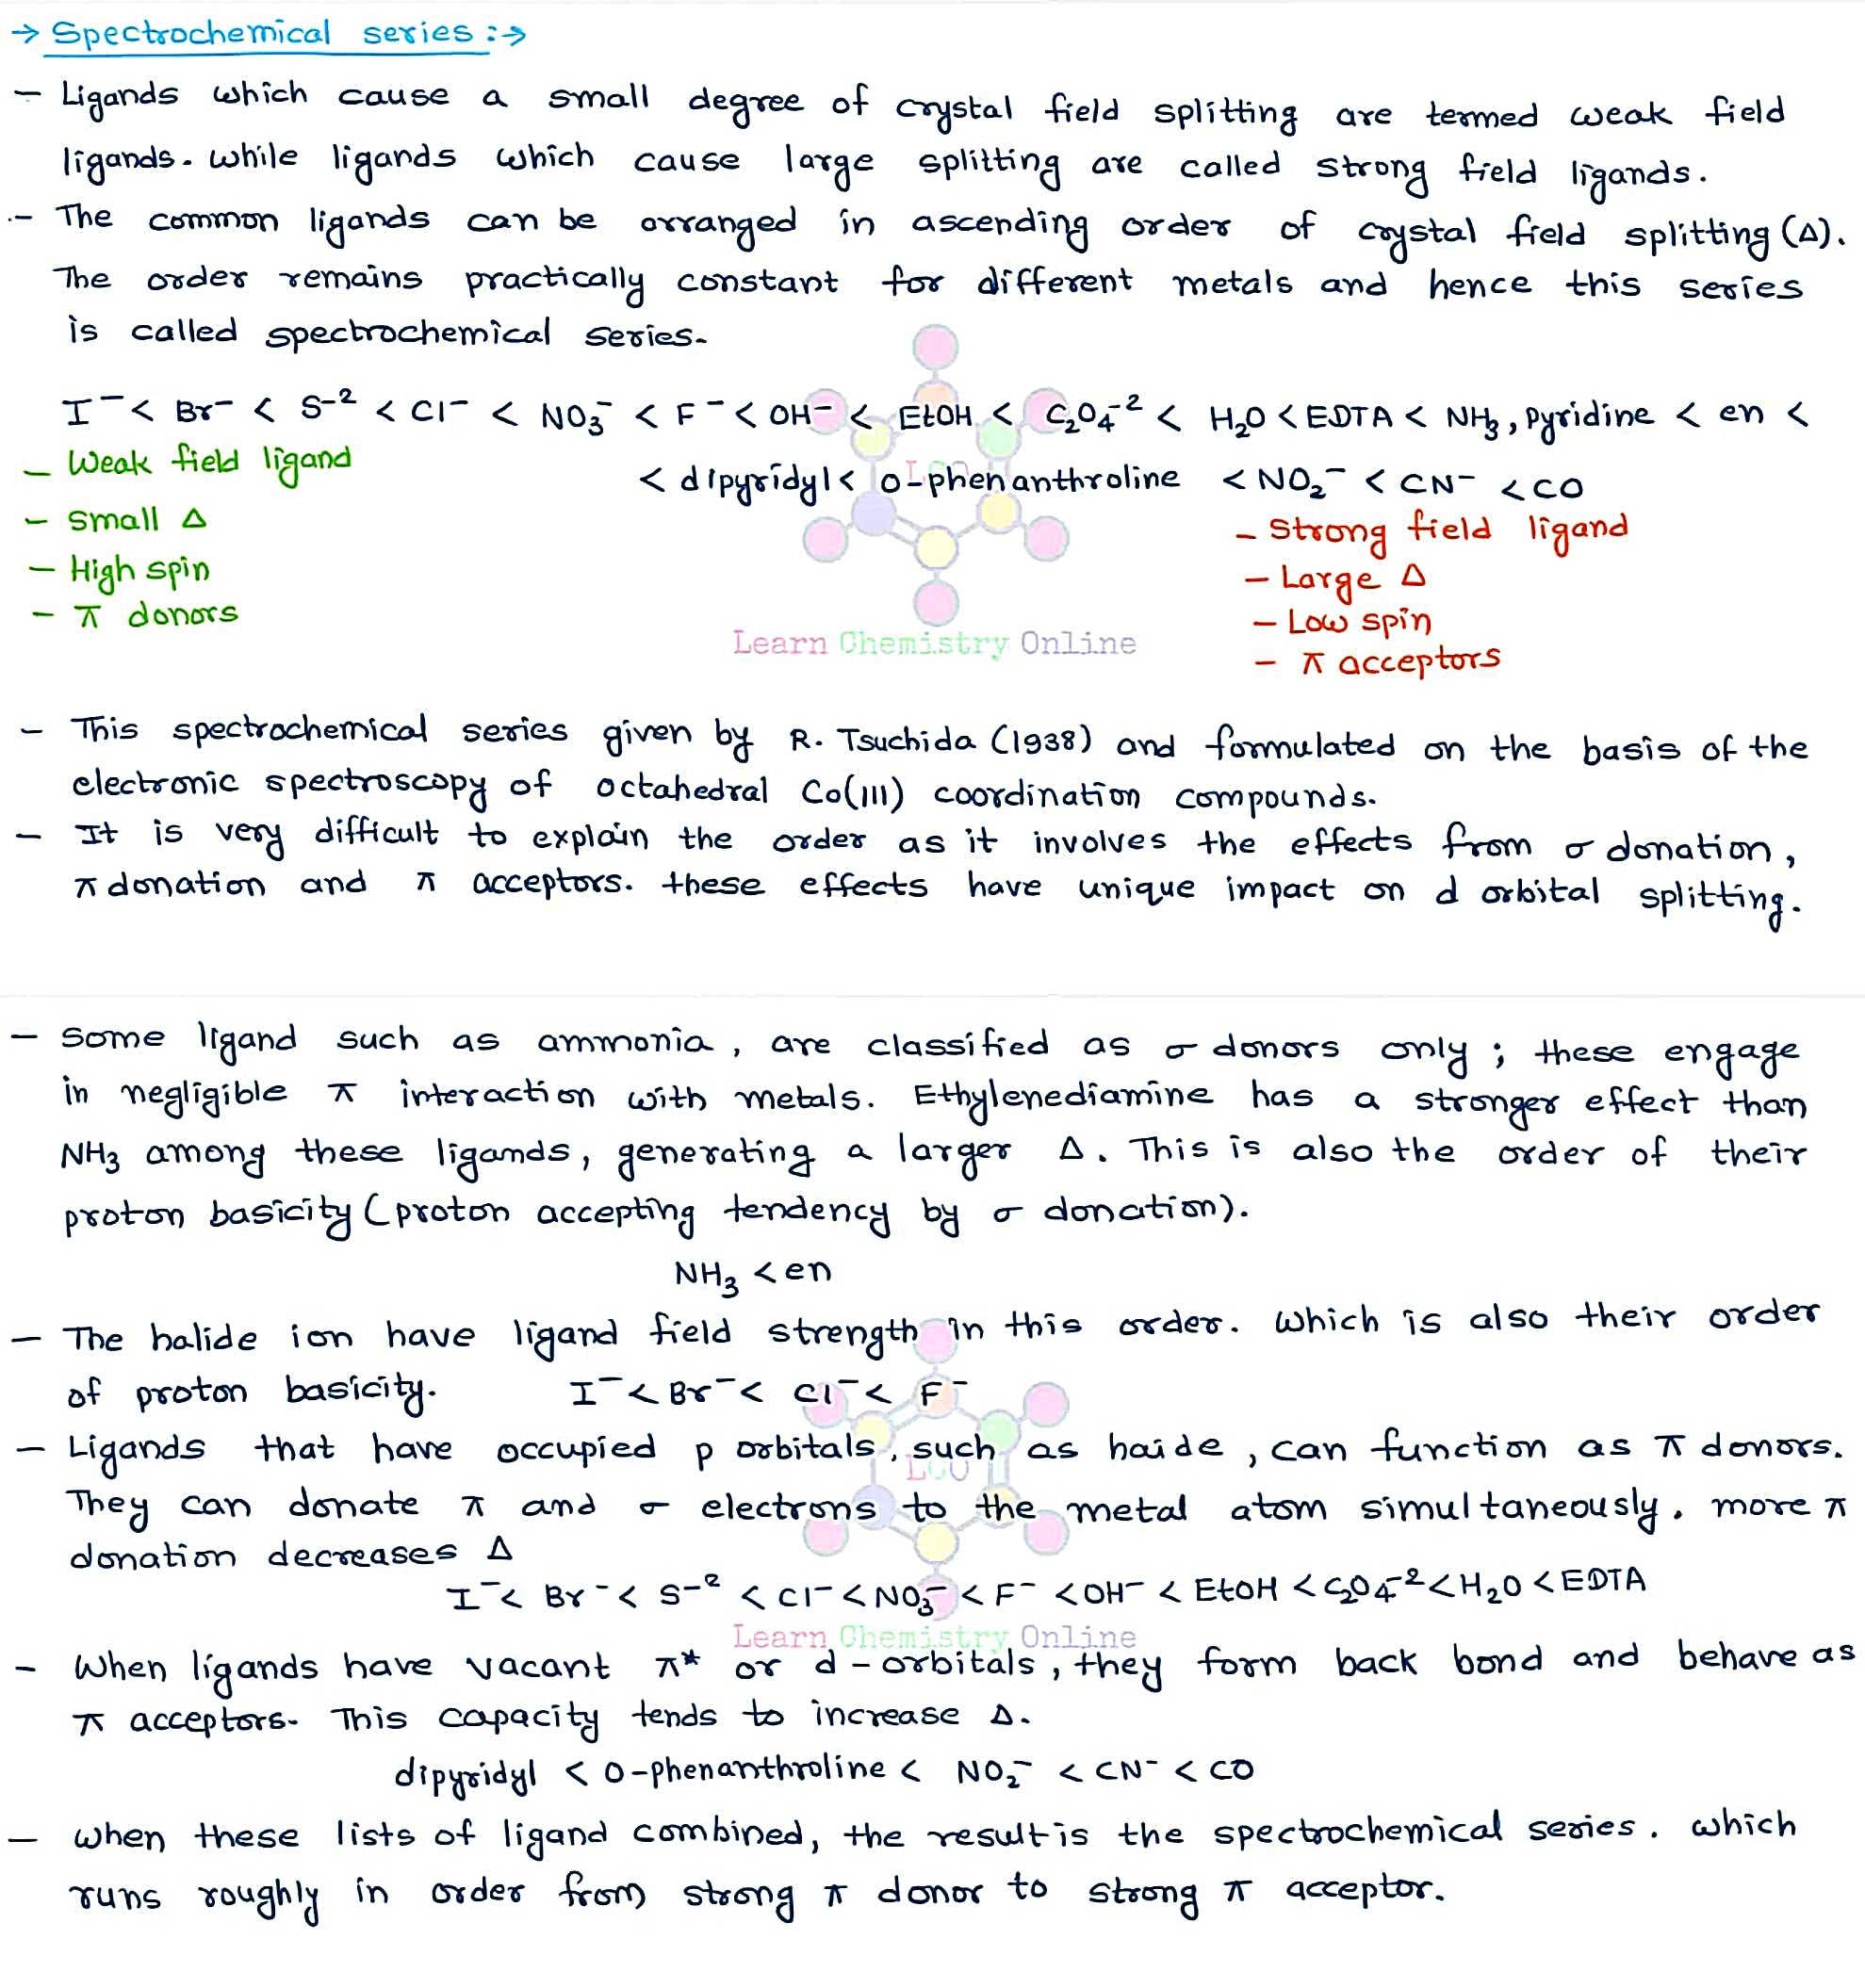 → Spectrochemical series :→
– Ligands which cause a small degree of crystal field splitting are termed weak field
ligands. while ligands which cause large splitting are called strong field ligands.
– The common ligands can be arranged in ascending order of crystal field splitting (Δ).
The order remains practically constant for different metals and hence this series
is called spectrochemical series.
I⁻ < Br⁻ < S⁻² < Cl⁻ < NO₃⁻ < F⁻ < OH⁻ < EtOH < C₂O₄⁻² < H₂O < EDTA < NH₃, Pyridine < en <
< dipyridyl < o-phenanthroline < NO₂⁻ < CN⁻ < CO
– Weak field ligand
– Small Δ
– High spin
– π donors
– Strong field ligand
– Large Δ
– Low spin
– π acceptors
Learn Chemistry Online
– This spectrochemical series given by R. Tsuchida (1938) and formulated on the basis of the
electronic spectroscopy of octahedral Co(III) coordination compounds.
– It is very difficult to explain the order as it involves the effects from σ donation,
π donation and π acceptors. these effects have unique impact on d orbital splitting.
– Some ligand such as ammonia, are classified as σ donors only; these engage
in negligible π interaction with metals. Ethylenediamine has a stronger effect than
NH₃ among these ligands, generating a larger Δ. This is also the order of their
proton basicity (proton accepting tendency by σ donation).
NH₃ < en
– The halide ion have ligand field strength in this order. which is also their order
of proton basicity. I⁻ < Br⁻ < Cl⁻ < F⁻
– Ligands that have occupied p orbitals, such as haide, can function as π donors.
They can donate π and σ electrons to the metal atom simultaneously. more π
donation decreases Δ
I⁻ < Br⁻ < S⁻² < Cl⁻ < NO₃⁻ < F⁻ < OH⁻ < EtOH < C₂O₄⁻² < H₂O < EDTA
Learn Chemistry Online
– When ligands have vacant π* or d-orbitals, they form back bond and behave as
π acceptors. This capacity tends to increase Δ.
dipyridyl < o-phenanthroline < NO₂⁻ < CN⁻ < CO
– when these lists of ligand combined, the result is the spectrochemical series. which
runs roughly in order from strong π donor to strong π acceptor.